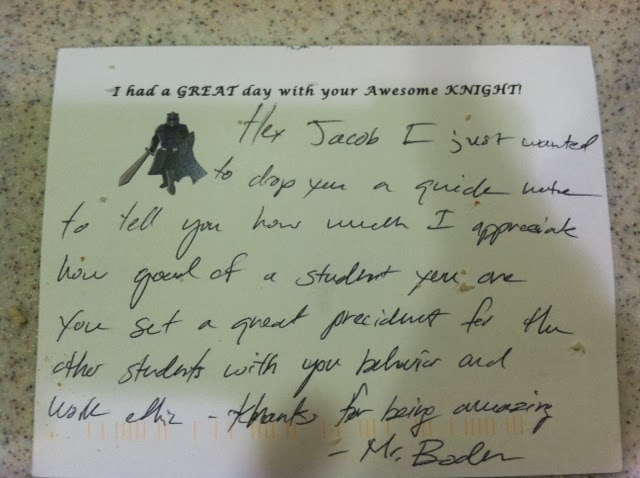 I had a GREAT day with your Awesome KNIGHT!
Hey Jacob I just wanted
to drop you a quick note
to tell you how much I appreciate
how good of a student you are
You set a great precident for the
other students with you behavior and
work ethic - thanks for being amazing
- Mr. Baden